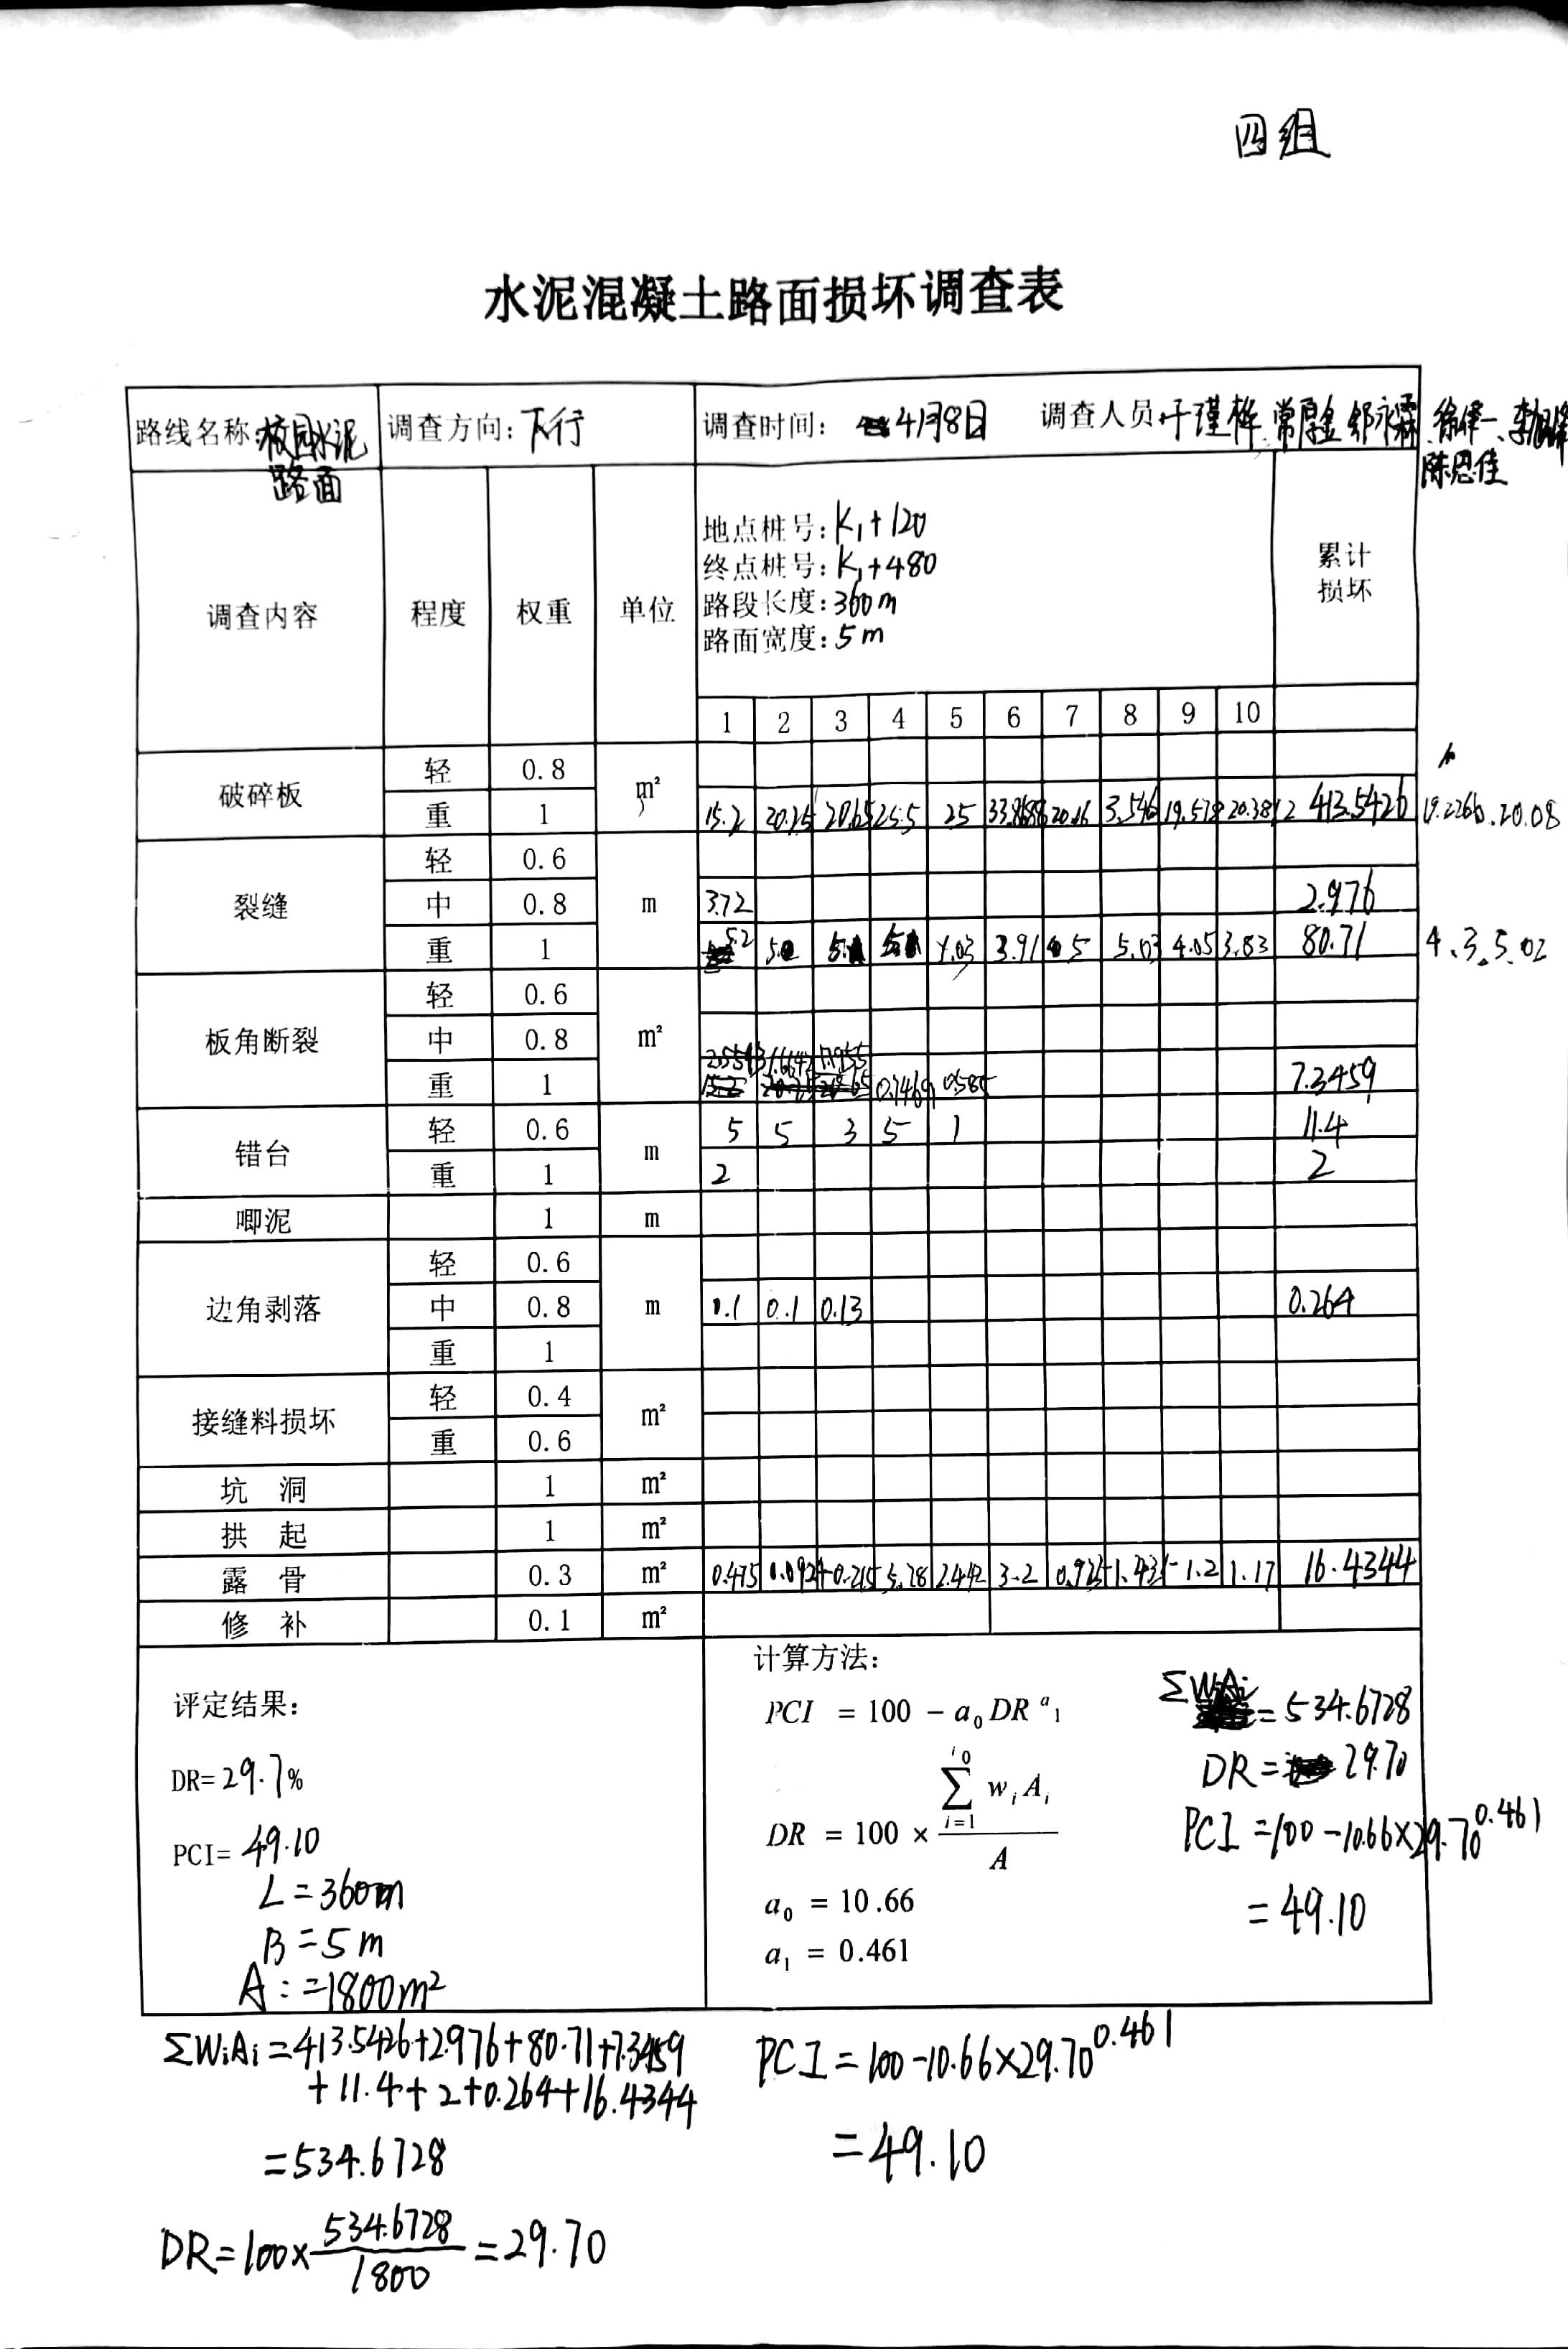 四组
水泥混凝土路面损坏调查表
路线名称: 校园水泥路面 调查方向: 下行 调查时间: 4月8日 调查人员: 于瑾桦 常厚金 邹永霖 徐 一、李
陈思佳
调查内容 程度 权重 单位 累计损坏
地点桩号: K1+120
终点桩号: K1+480
路段长度: 360m
路面宽度: 5m
1 2 3 4 5 6 7 8 9 10
破碎板 轻 0.8 m²
重 1 15.2 20.25 20.65 25.5 25 33.8688 20.16 3.546 19.578 20.3812 413.5426 19.2266. 20.08
裂缝 轻 0.6 m
中 0.8 3.72 2.976
重 1 5.2 3.91 5 5.03 4.05 3.83 80.71 4.3. 5.02
板角断裂 轻 0.6 m²
中 0.8
重 1 0.7469 0.585 7.3459
错台 轻 0.6 m 5 5 3 5 1 11.4
重 1 2 2
唧泥 1 m
边角剥落 轻 0.6 m
中 0.8 0.1 0.1 0.13 0.264
重 1
接缝料损坏 轻 0.4 m²
重 0.6
坑 洞 1 m²
拱 起 1 m²
露 骨 0.3 m² 0.475 0.0924 0.215 5.28 2.442 3.2 1.2 1.17 16.4344
修 补 0.1 m²
评定结果:
DR= 29.7%
PCI= 49.10
L=360m
B=5m
A:=1800m²
计算方法:
PCI = 100 − a₀DR^a₁
DR = 100 × (∑ i=1 i₀ wᵢAᵢ) / A
a₀ = 10.66
a₁ = 0.461
ΣWiAi = 534.6728
DR = 29.70
PCI = 100−10.66×29.70^0.461
= 49.10
ΣWiAi = 413.5426+2.976+80.71+7.3459
+11.4+2+0.264+16.4344
= 534.6728
DR = 100 × 534.6728 / 1800 = 29.70
PCI = 100−10.66×29.70^0.461
= 49.10